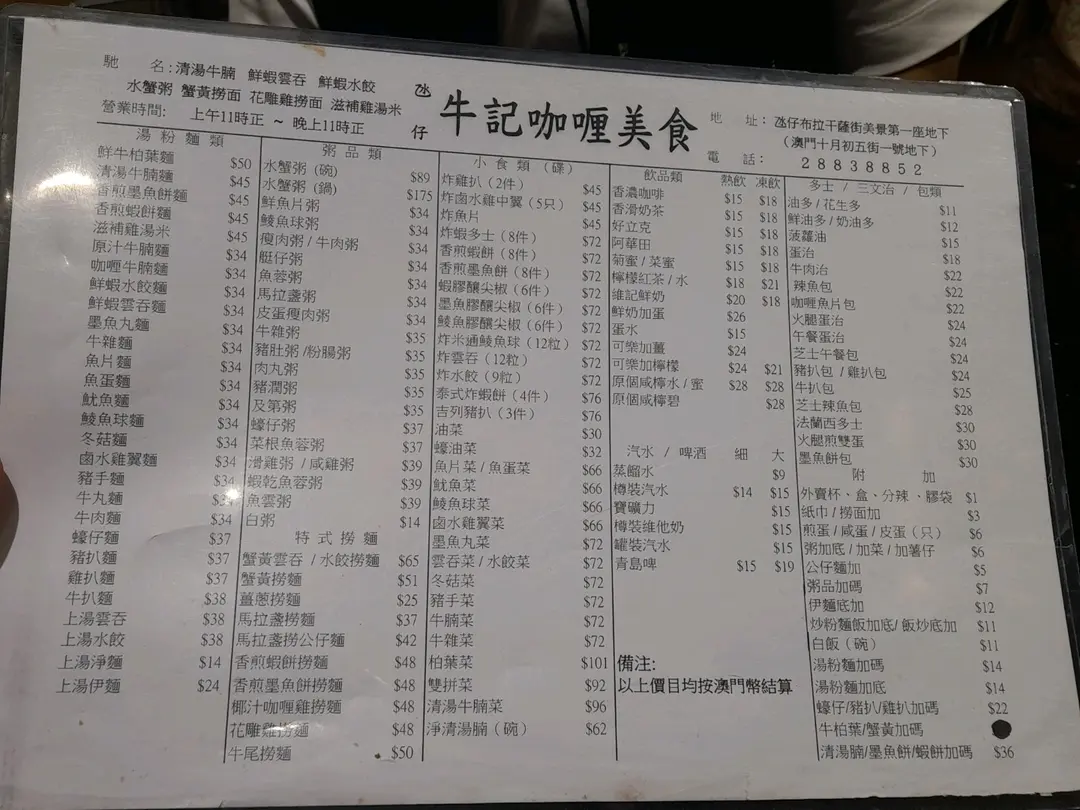 馳 名:清湯牛腩 鮮蝦雲吞 鮮蝦水餃
水蟹粥 蟹黃撈面 花雕雞撈面 滋補雞湯米
營業時間: 上午11時正 ~ 晚上11時正
氹仔 牛記咖喱美食
地 址: 氹仔布拉干薩街美景第一座地下
(澳門十月初五街一號地下)
電 話: 28838852
湯粉麵類
鮮牛柏葉麵 $50
清湯牛腩麵 $45
香煎墨魚餅麵 $45
香煎蝦餅麵 $45
滋補雞湯米 $45
原汁牛腩麵 $34
咖喱牛腩麵 $34
鮮蝦水餃麵 $34
鮮蝦雲吞麵 $34
墨魚丸麵 $34
牛雜麵 $34
魚片麵 $34
魚蛋麵 $34
魷魚麵 $34
鯪魚球麵 $34
冬菇麵 $34
鹵水雞翼麵 $34
豬手麵 $34
牛丸麵 $34
牛肉麵 $34
蠔仔麵 $37
豬扒麵 $37
雞扒麵 $37
牛扒麵 $38
上湯雲吞 $38
上湯水餃 $38
上湯淨麵 $14
上湯伊麵 $24
粥品類
水蟹粥(碗) $89
水蟹粥(鍋) $175
鮮魚片粥 $34
鯪魚球粥 $34
瘦肉粥/牛肉粥 $34
艇仔粥 $34
魚蓉粥 $34
馬拉盞粥 $34
皮蛋瘦肉粥 $34
牛雜粥 $35
豬肚粥/粉腸粥 $35
肉丸粥 $35
豬潤粥 $35
及第粥 $35
蠔仔粥 $37
菜根魚蓉粥 $37
滑雞粥/咸雞粥 $39
蝦乾魚蓉粥 $39
魚雲粥 $39
白粥 $14
特式撈麵
蟹黃雲吞/水餃撈麵 $65
蟹黃撈麵 $51
薑蔥撈麵 $25
馬拉盞撈麵 $37
馬拉盞撈公仔麵 $42
香煎蝦餅撈麵 $48
香煎墨魚餅撈麵 $48
椰汁咖喱雞撈麵 $48
花雕雞撈麵 $48
牛尾撈麵 $50
小食類(碟)
炸雞扒(2件) $45
炸鹵水雞中翼(5只) $45
炸魚片 $45
炸蝦多士(8件) $72
香煎蝦餅(8件) $72
香煎墨魚餅(8件) $72
蝦膠釀尖椒(6件) $72
墨魚膠釀尖椒(6件) $72
鯪魚膠釀尖椒(6件) $72
炸米通鯪魚球(12粒) $72
炸雲吞(12粒) $72
炸水餃(9粒) $72
泰式炸蝦餅(4件) $76
吉列豬扒(3件) $76
油菜 $30
蠔油菜 $32
魚片菜/魚蛋菜 $66
魷魚菜 $66
鯪魚球菜 $66
鹵水雞翼菜 $66
墨魚丸菜 $72
雲吞菜/水餃菜 $72
冬菇菜 $72
豬手菜 $72
牛腩菜 $72
牛雜菜 $72
柏葉菜 $101
雙拼菜 $92
清湯牛腩菜 $96
淨清湯腩(碗) $62
飲品類 熱飲 凍飲
香濃咖啡 $15 $18
香滑奶茶 $15 $18
好立克 $15 $18
阿華田 $15 $18
菊蜜/菜蜜 $15 $18
檸檬紅茶/水 $18 $21
維記鮮奶 $20 $18
鮮奶加蛋 $26
蛋水 $15
可樂加薑 $24
可樂加檸檬 $24 $21
原個咸檸水/蜜 $28 $28
原個咸檸碧 $28
汽水/啤酒 細 大
蒸餾水 $9
樽裝汽水 $14 $15
寶礦力 $15
樽裝維他奶 $15
罐裝汽水 $15
青島啤 $15 $19
備注:
以上價目均按澳門幣結算
多士/三文治/包類
油多/花生多 $11
鮮油多/奶油多 $12
菠蘿油 $15
蛋治 $18
牛肉治 $22
辣魚包 $22
咖喱魚片包 $22
火腿蛋治 $24
午餐蛋治 $24
芝士午餐包 $24
豬扒包/雞扒包 $24
牛扒包 $25
芝士辣魚包 $28
法蘭西多士 $30
火腿煎雙蛋 $30
墨魚餅包 $30
附 加
外賣杯、盒、分辣、膠袋 $1
纸巾/撈面加 $3
煎蛋/咸蛋/皮蛋(只) $6
粥加底/加菜/加薯仔 $6
公仔麵加 $5
粥品加碼 $7
伊麵底加 $12
炒粉麵飯加底/飯炒底加 $11
白飯(碗) $11
湯粉麵加碼 $14
湯粉麵加底 $14
蠔仔/豬扒/雞扒加碼 $22
牛柏葉/蟹黃加碼
清湯腩/墨魚餅/蝦餅加碼 $36